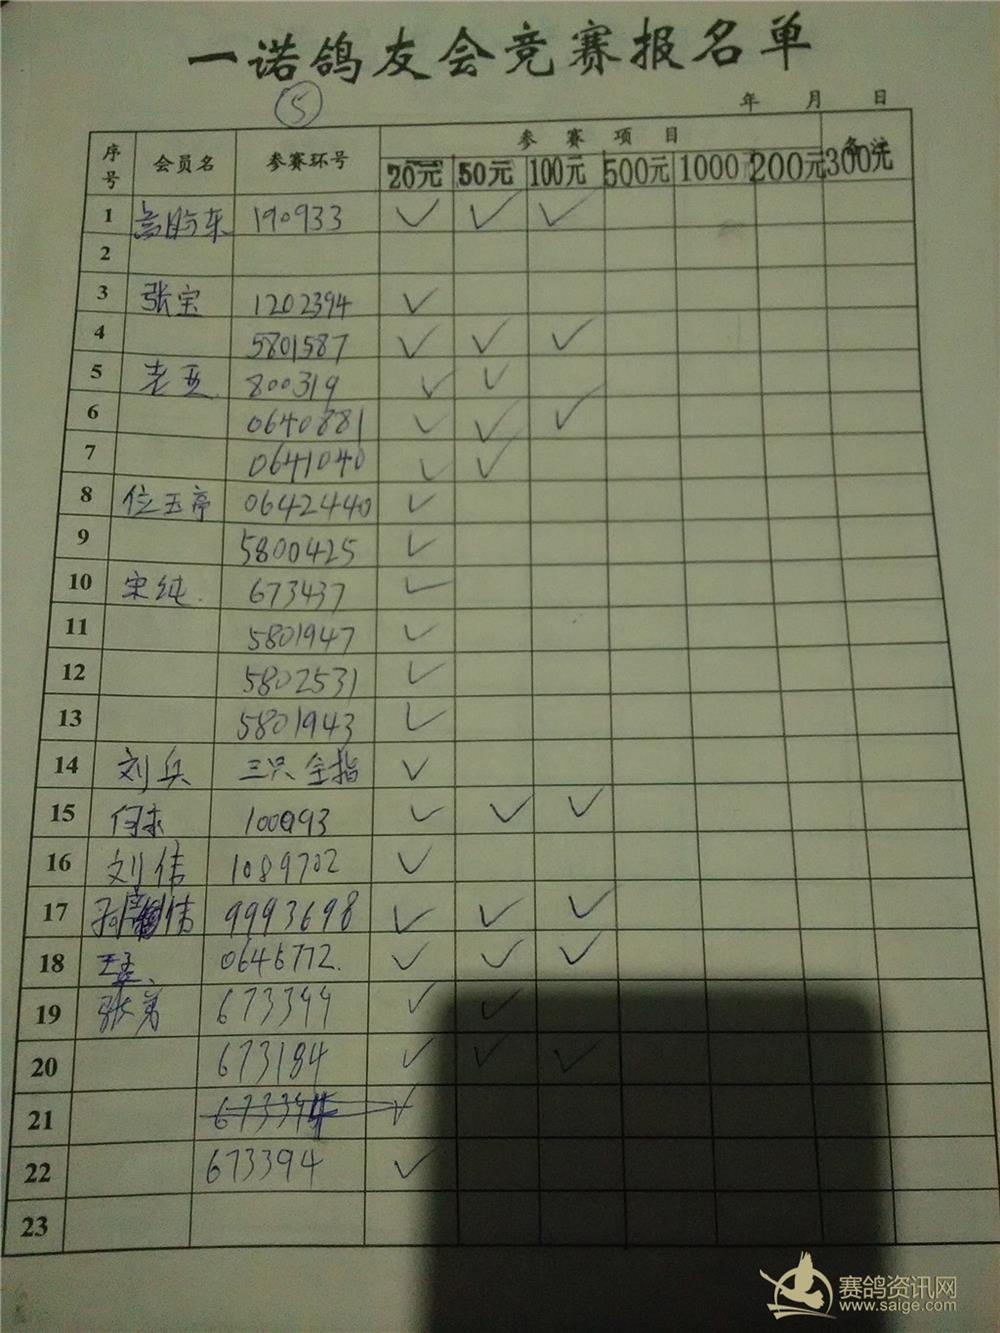 一诺鸽友会竞赛报名单
5
年 月 日
序号 会员名 参赛环号 参赛项目
20元 50元 100元 500元 1000 200元 300元
1 190933 ✓ ✓ ✓
2
3 张宝 1202394 ✓
4 5801587 ✓ ✓ ✓
5 老五 800319 ✓ ✓
6 0640881 ✓ ✓ ✓
7 0641040 ✓ ✓
8 位玉亭 0642440 ✓
9 5800425 ✓
10 宋纯. 673437 ✓
11 5801947 ✓
12 5802531 ✓
13 5801943 ✓
14 刘兵 三只全指 ✓
15 100093 ✓ ✓ ✓
16 刘伟 1089702 ✓
17 9993698 ✓ ✓ ✓
18 0646772. ✓ ✓ ✓
19 673344 ✓ ✓
20 673184 ✓ ✓ ✓
21 ✓
22 673394 ✓
23
赛鸽资讯网
www.saige.com